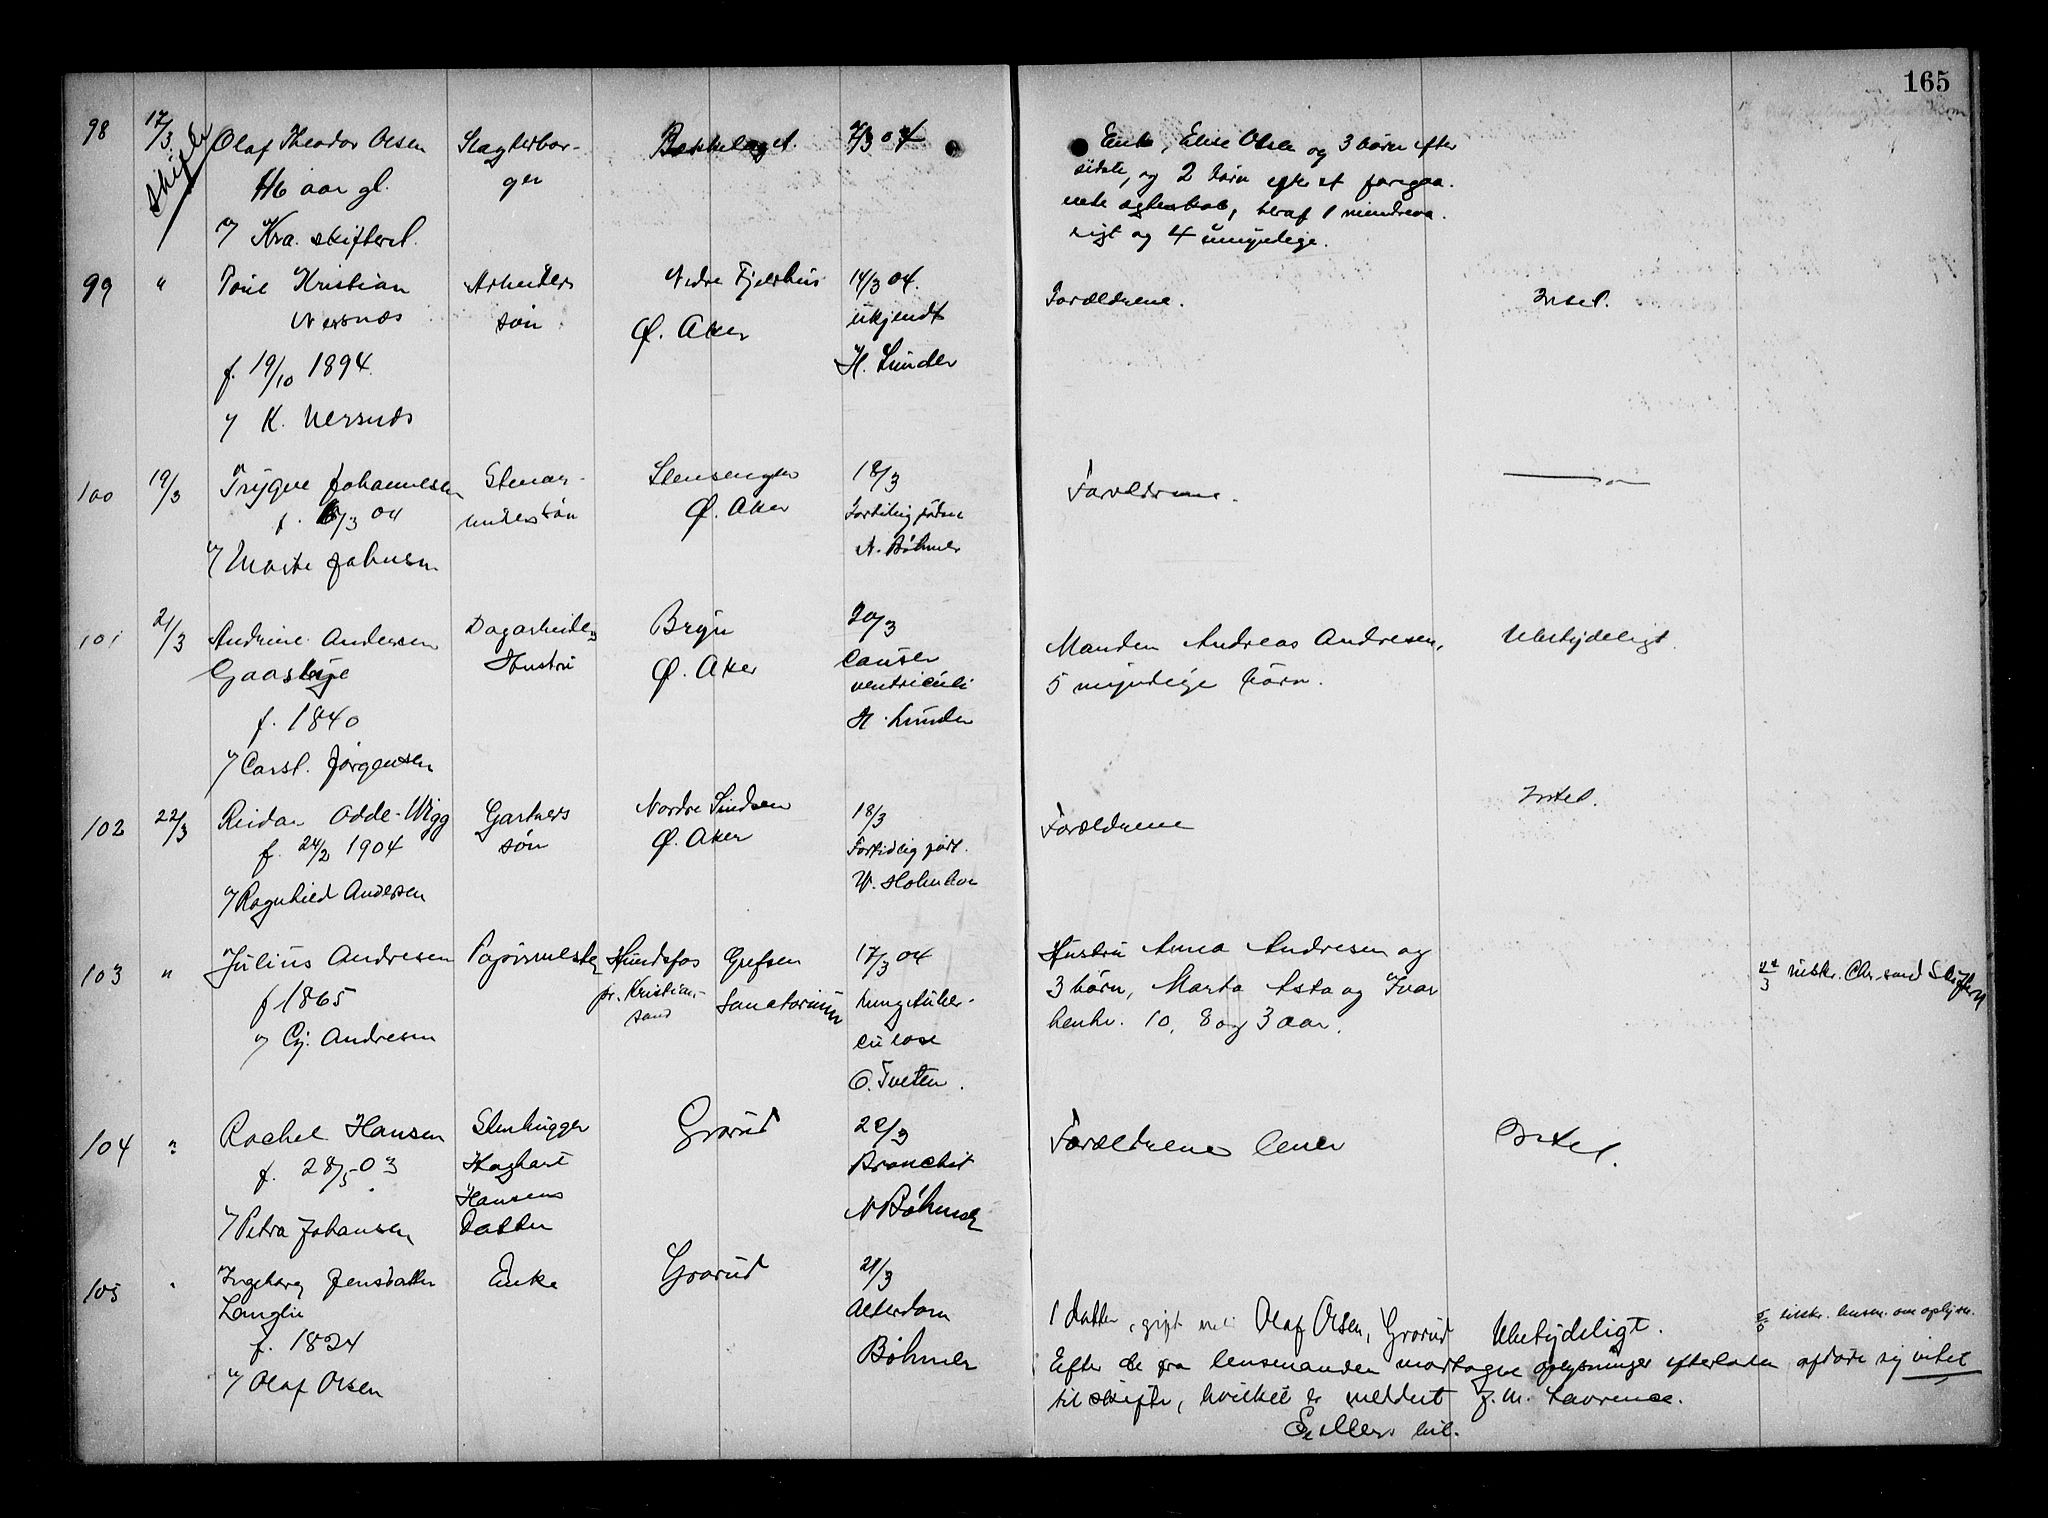 165
98 17/3 Olaf Theodor Olsen Slagterbor- Bekkelaget. 7/3 04 Enke, Elise Olsen og 3 børn efter
Skifte 46 aar gl. ger sidste, og 2 børn efter et foregaa-
v/ Kra. skifteret. ende egteskab, heraf 1 mindreaa-
rigt og 4 umyndige.
99 " Poul Kristian Arbeiders Nedre Fjeldhus 14/3 04. Forældrene. Intet.
Nersnes søn Ø. Aker ukjendt
f. 19/10 1894. H. Lunder
v/ K. Nersnes
100 19/3 Trygve Johannesen Stenar- Stensengen 18/3 Forældrene.
f. /3 04 beidersøn Ø. Aker Fortidlig født
v/ Marte Johnsen N. Bøhmer
101 21/3 Andrine Andersen Dagarbeiders Bryn 20/3 Manden Andreas Andresen, Ubetydeligt.
Gaasløje Hustru Ø. Aker Cancer 5 myndige børn.
f. 1840 ventriculi
v/ Carsl. Jørgensen H. Lunder
102 22/3 Reidar Odde-Wigg Gartners Nordre Lindern 18/3 Forældrene Intet.
f. 24/2 1904 søn Ø. Aker Fortidlig født.
v/ Ragnhild Andersen W. Holmboe
103 " Julius Andresen Papirmester Hundsfos Grefsen 17/3 04 Hustru Anna Andresen og 22/3 utskr. Chr.sand Skifteret
f 1865 pr. Kristian- Sanatorium Lungetuber- 3 børn, Marta Asta og Ivar
v/ Cj. Andresen sand culose henhv. 10, 8 og 3 aar.
O. Tveten.
104 " Rachel Hansen Stenhugger Grorud 22/3 Forældrene lever Intet.
f. 28/5-03 Haghart Bronchit
Hansens N Bøhmer
v/ Petra Johansen Datter
105 " Ingeborg Jensdatter Enke Grorud 21/3
Langlie Alderdom 1 datter, gift med Olaf Olsen, Grorud Ubetydeligt. 5/5 utskr. lensm. om oplysn.
f. 1824 Bøhmer Efter de fra lensmanden modtagne oplysninger efterlader afdøde sig intet
v/ Olaf Olsen til skifte, hvilket er meldt J. M. Lavrence.